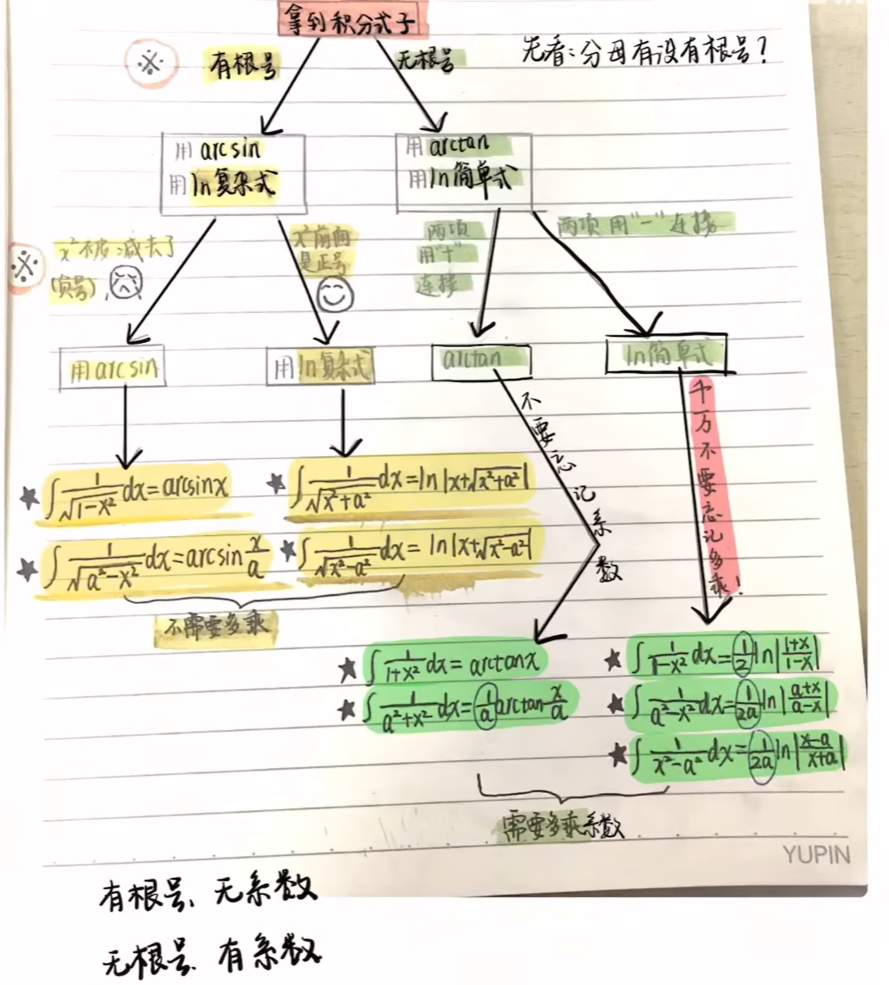 拿到积分式子
先看:分母有没有根号?
※ 有根号
无根号
用 arcsin
用 ln复杂式
用 arctan
用 ln简单式
※ x²不皮减去了
(负号)
x²前面
是正号
两项
用"+"
连接
两项用"-"连接
用 arcsin
用 ln复杂式
arctan
ln简单式
不要忘记系数
千万不要忘记多乘!
★ ∫ 1/√(1-x²) dx = arcsinx
★ ∫ 1/√(x²+a²) dx = ln|x+√(x²+a²)|
★ ∫ 1/√(a²-x²) dx = arcsin x/a
★ ∫ 1/√(x²-a²) dx = ln|x+√(x²-a²)|
不需要多乘
★ ∫ 1/(1+x²) dx = arctanx
★ ∫ 1/(1-x²) dx = 1/2 ln|(1+x)/(1-x)|
★ ∫ 1/(a²+x²) dx = 1/a arctan x/a
★ ∫ 1/(a²-x²) dx = 1/2a ln|(a+x)/(a-x)|
★ ∫ 1/(x²-a²) dx = 1/2a ln|(x-a)/(x+a)|
需要多乘系数
YUPIN
有根号、无系数
无根号、有系数